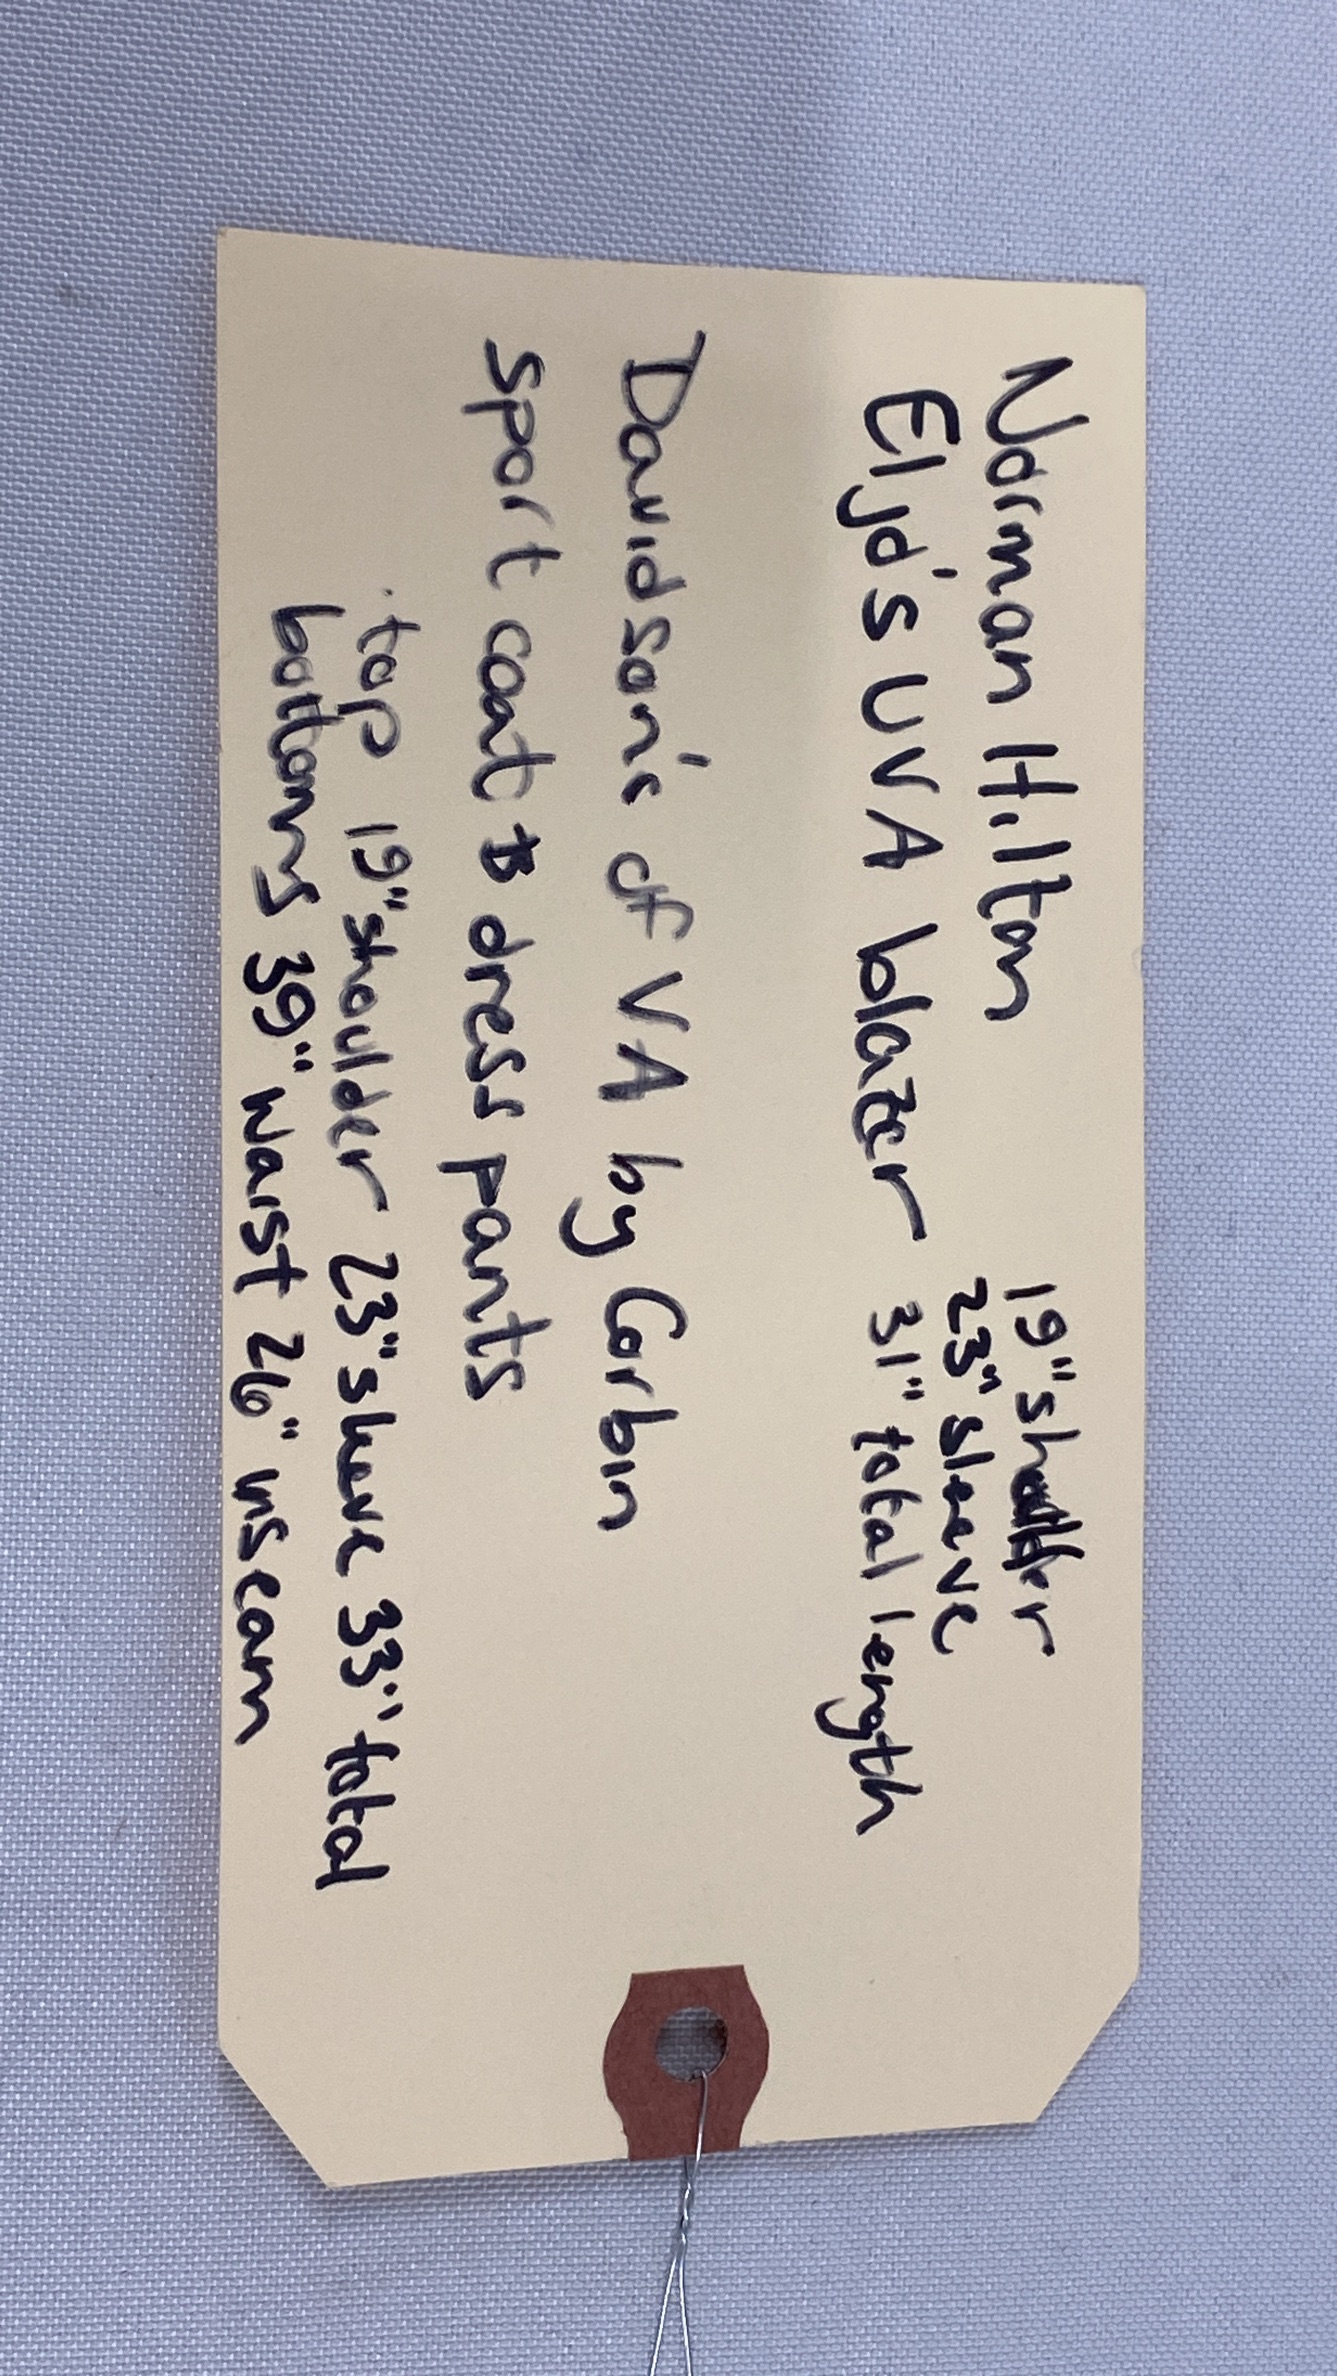 Norman Hilton 19" shoulder
23" sleeve
Eljo's UVA blazer 31" total length
Davidson's of VA by Corbin
sport coat & dress pants
·top 19" shoulder 23" sleeve 33" total
bottoms 39" waist 26" inseam